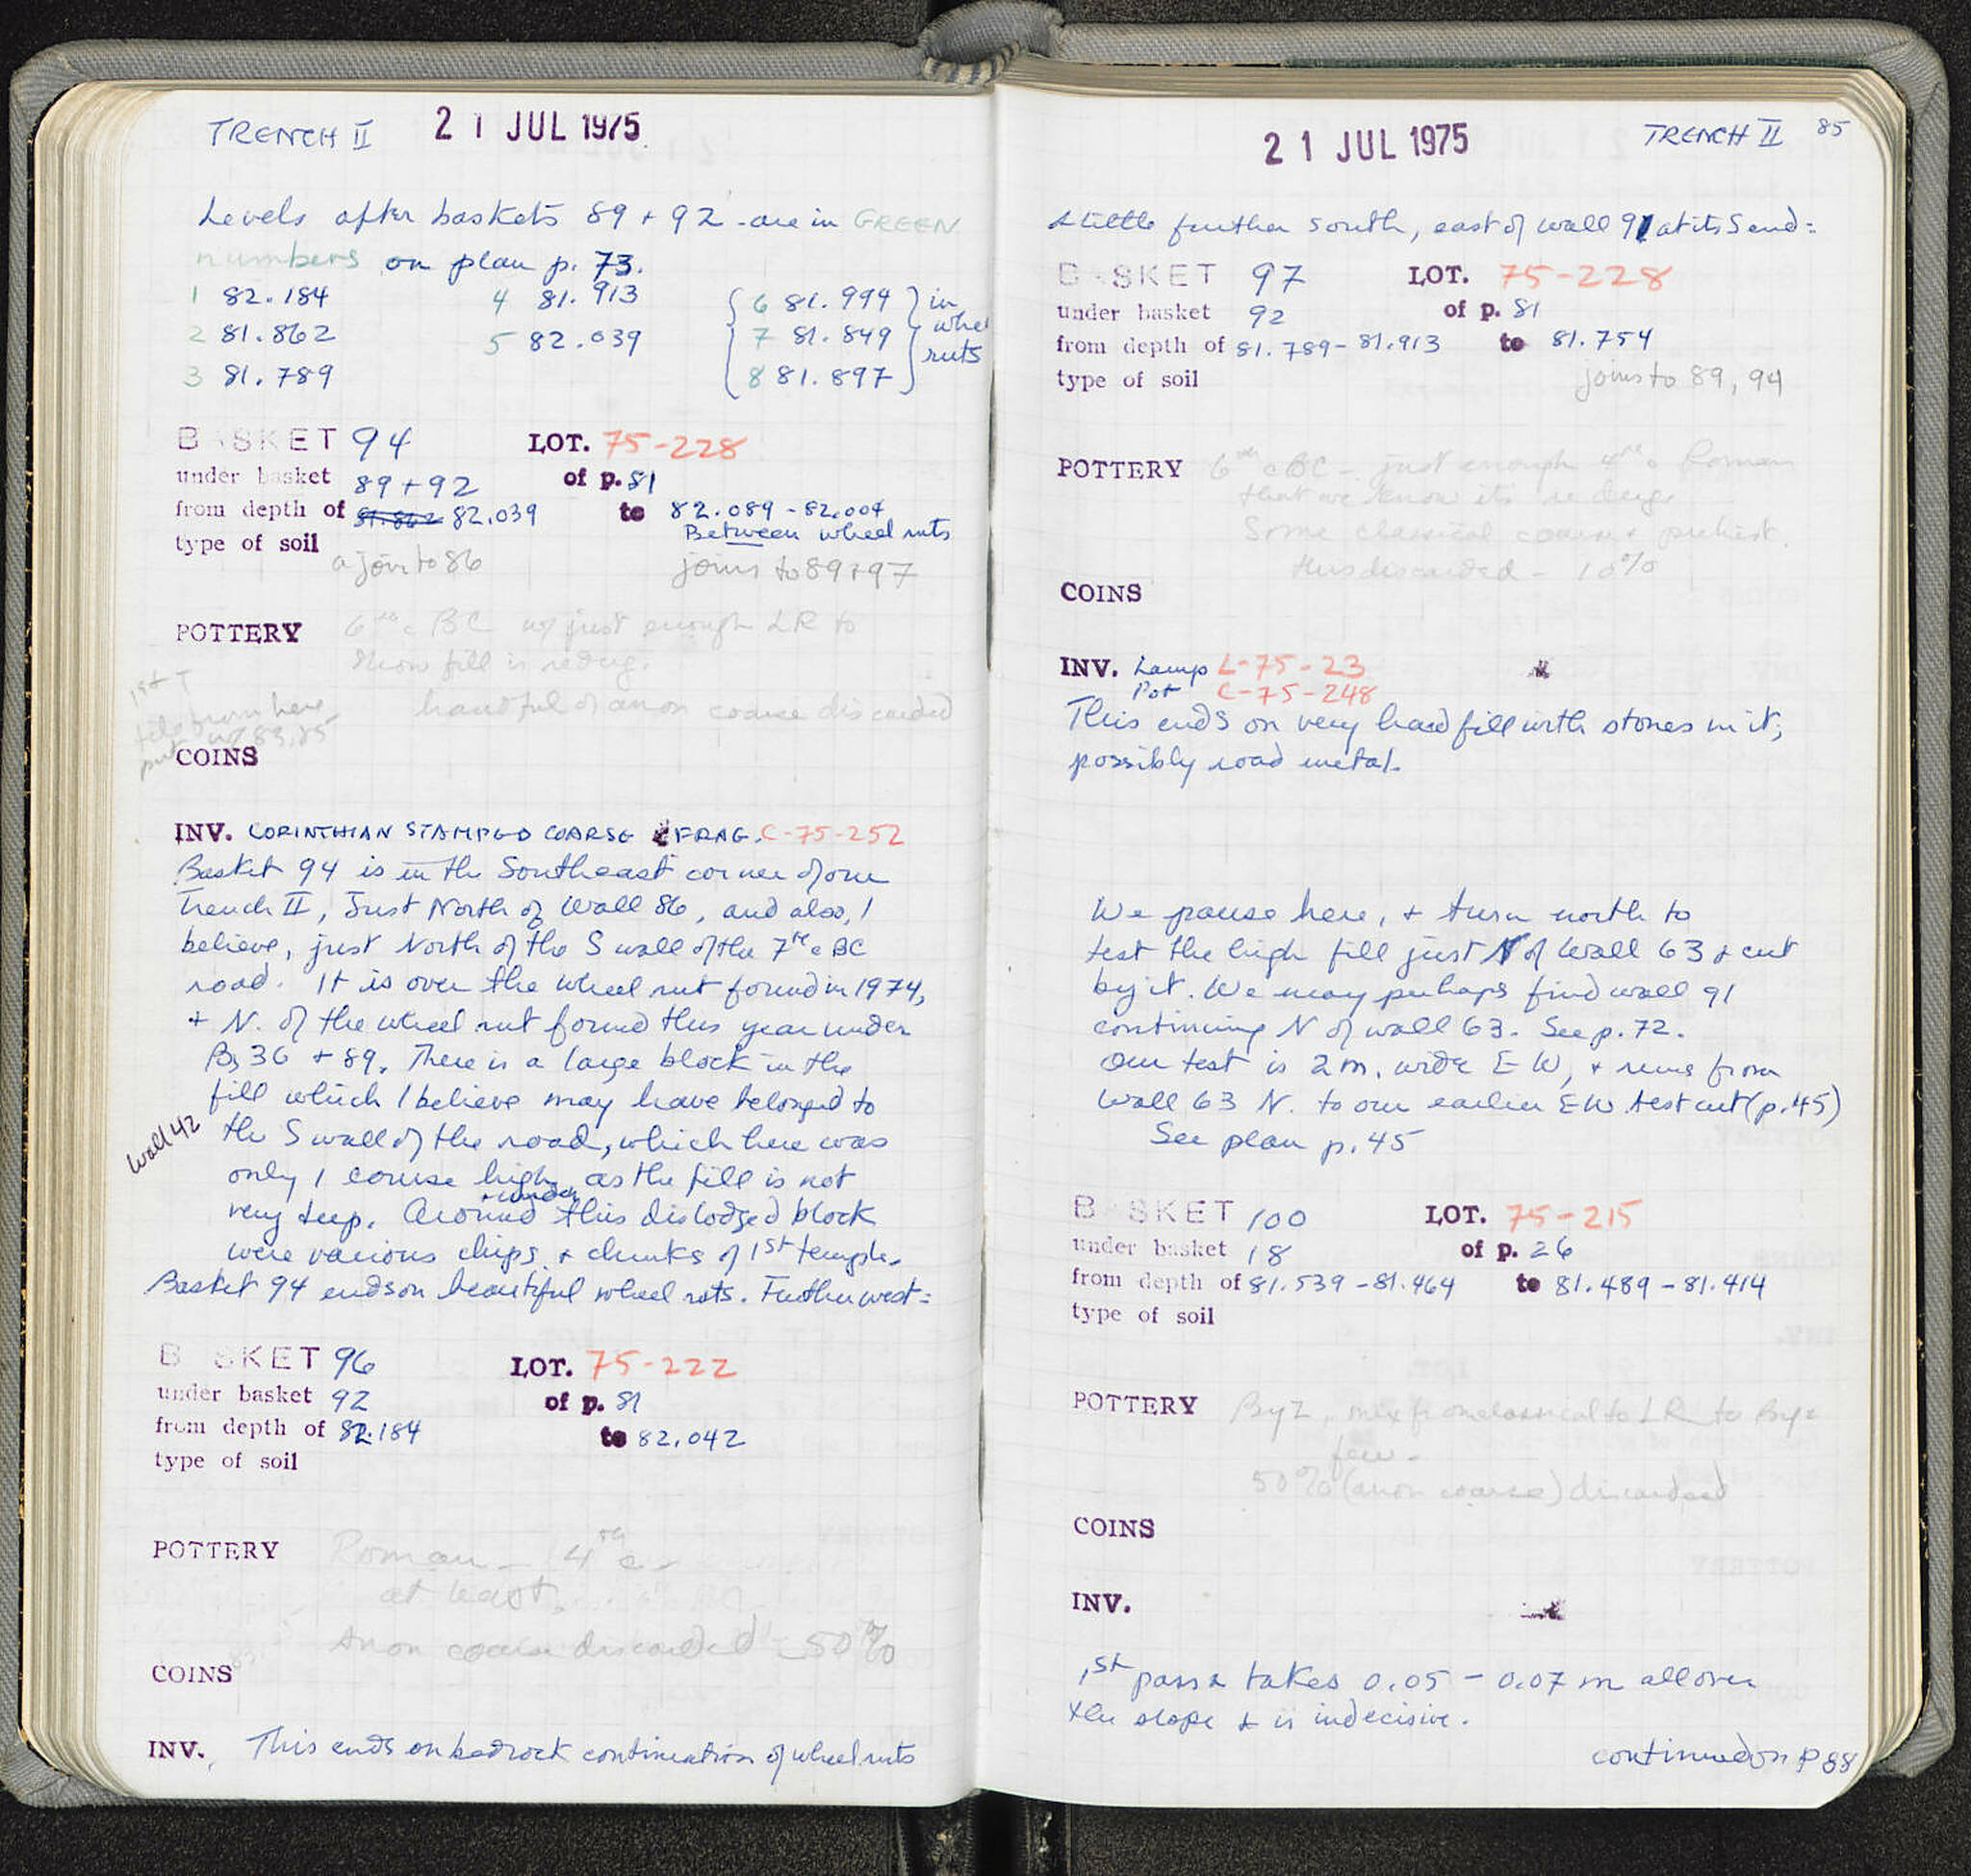 TRENCH II 21 JUL 1975
Levels after baskets 89 + 92 - are in GREEN
numbers on plan p. 73.
1 82.184 4 81.913 { 6 81.994 } in
2 81.862 5 82.039 { 7 81.849 } whe
3 81.789 { 8 81.897 } ruts
BASKET 94 LOT. 75-228
under basket 89 + 92 of p. 81
from depth of 81.862 82.039 to 82.089 - 82.004
type of soil Between wheel ruts
a join to 86 joins to 89 + 97
POTTERY 6th c BC w/ just enough LR to
show fill is redug.
handful of anon coarse discarded
1st T
tile from here
puts w/ 83, 85
COINS
INV. CORINTHIAN STAMPED COARSE FRAG. C-75-252
Basket 94 is in the Southeast corner of our
Trench II, Just North of Wall 86, and also, I
believe, just North of the S wall of the 7th c BC
road. It is over the wheel rut found in 1974,
+ N. of the wheel rut found this year under
Bs 36 + 89. There is a large block in the
fill which I believe may have belonged to
wall 42
the S wall of the road, which here was
only 1 course high, as the fill is not
very deep. Around + under this dislodged block
were various chips + chunks of 1st temple.
Basket 94 ends on beautiful wheel ruts. Further west =
BASKET 96 LOT. 75-222
under basket 92 of p. 81
from depth of 82.184 to 82.042
type of soil
POTTERY Roman - 4th c -
at least.
Anon coarse discarded - 50%
COINS
INV. This ends on bedrock continuation of wheel ruts
21 JUL 1975 TRENCH II 85
A little further south, east of wall 91 at its S end =
BASKET 97 LOT. 75-228
under basket 92 of p. 81
from depth of 81.789 - 81.913 to 81.754
type of soil joins to 89, 94
POTTERY 6th c BC - just enough 4th c Roman
that we know its redug.
Some classical coarse + prehist.
thus discarded - 10%
COINS
INV. Lamp L-75-23
Pot C-75-248
This ends on very hard fill with stones in it;
possibly road metal.
We pause here, + turn north to
test the high fill just N of Wall 63 + cut
by it. We may perhaps find wall 91
continuing N of wall 63. See p. 72.
Our test is 2 m. wide E W, + runs from
Wall 63 N. to our earlier EW test cut (p. 45)
See plan p. 45
BASKET 100 LOT. 75-215
under basket 18 of p. 26
from depth of 81.539 - 81.464 to 81.489 - 81.414
type of soil
POTTERY Byz, mix from classical to LR to Byz
few -
50% (anon coarse) discarded
COINS
INV.
1st pass takes 0.05 - 0.07 m all over
the slope + is indecisive.
continued on p 88